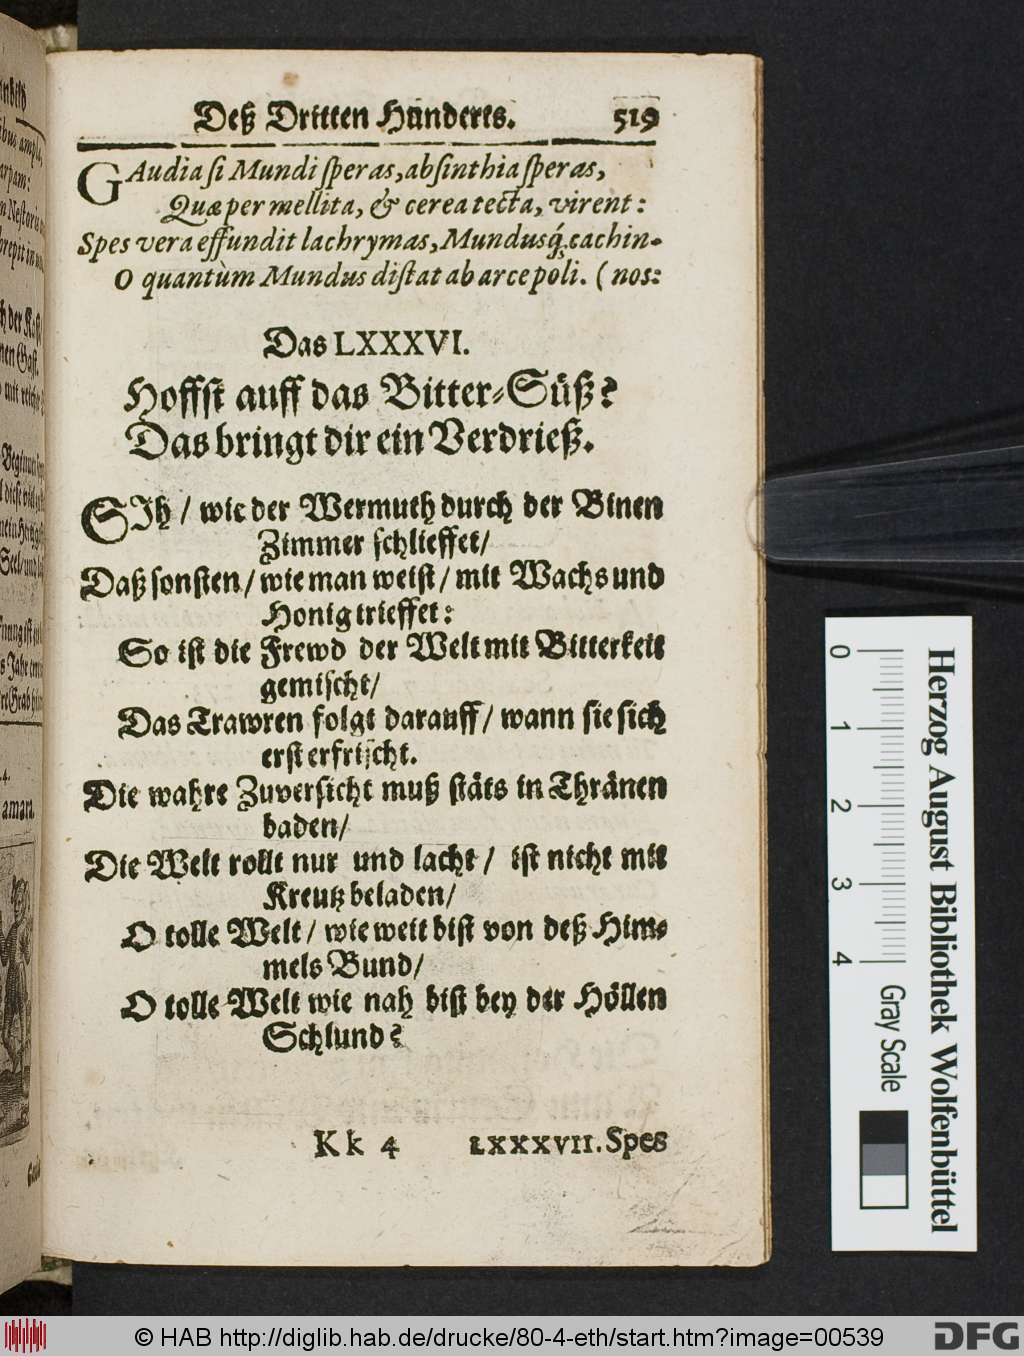 Deß Dritten Hunderts. 519
GAudia ſi Mundi ſperas, abſinthia ſperas,
Quæ per mellita, & cerea tecta, virent:
Spes vera effundit lachrymas, Mundusq́; cachin-
O quantùm Mundus diſtat ab arce poli. ( nos:
Das LXXXVI.
Hoffſt auff das Bitter-Süß?
Das bringt dir ein Verdrieß.
SIh / wie der Wermuth durch der Binen
Zimmer ſchlieffet/
Daß ſonſten / wie man weiſt / mit Wachs und
Honig trieffet:
So iſt die Frewd der Welt mit Bitterkeit
gemiſcht/
Das Trawren folgt darauff / wann ſie ſich
erſt erfriſcht.
Die wahre Zuverſicht muß ſtäts in Thränen
baden/
Die Welt rollt nur und lacht / iſt nicht mit
Kreutz beladen/
O tolle Welt / wie weit biſt von deß Him-
mels Bund/
O tolle Welt wie nah biſt bey der Höllen
Schlund?
K k 4 LXXXVII. Spes
amara.
0 1 2 3 4
Gray Scale
Herzog August Bibliothek Wolfenbüttel
© HAB http://diglib.hab.de/drucke/80-4-eth/start.htm?image=00539
DFG